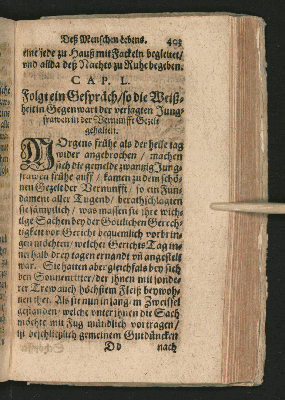 Deß Menschen lebens. 493
eine jede zu Hauß mit Fackeln begleitet/
vnd allda deß Nachts zu Ruhe begeben.
CAP. L.
Folgt ein Gespräch/so die Weiß-
heit in Gegenwart der versagten Jung-
frawen in der Vernunfft Gezelt
gehalten.
MOrgens frühe als der helle tag
wider angebrochen/ machen
sich die gemelde zwantzig Jung-
frawen frühe auff/ kamen zu dem schö-
nen Gezelt der Vernunfft/ so ein Fun-
dament aller Tugend/ berathschlagten
sie sämptlich/ was massen sie ihre wich-
tige Sachen bey der Göttlichen Gerech-
tigkeit vor Gericht bequemlich vorbrin-
gen möchten/ welcher Gerichts Tag in-
ner halb drey tagen ernandt vñ angestellt
war. Sie hatten aber gleichfals bey sich
den Sonnenritter/der ihnen mit sonde-
rer Trew auch höchstem Fleiß beywoh-
nen thet. Als sie nun in lang im Zweiffel
gestanden/ welche vnter ihnen die Sach
möchte mit Fug mündlich vortragen/
ist beschließlich gemeinem Gutdüncken
Dd nach